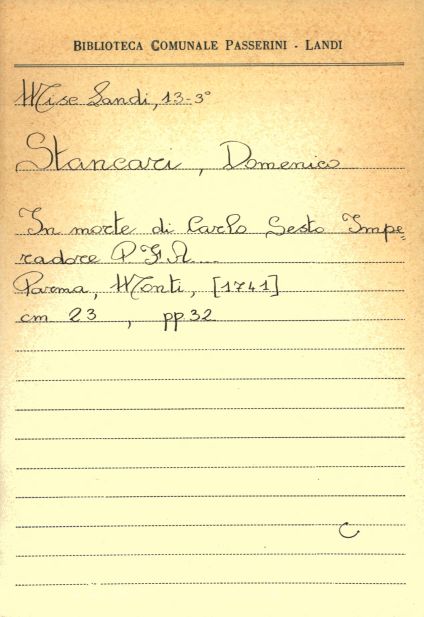 BIBLIOTECA COMUNALE PASSERINI - LANDI
Misc Landi, 13-3°
Stancari, Domenico
In morte di Carlo Sesto Impe=
radore P. F. A...
Parma, Monti, [1741]
cm 23, pp. 32
C